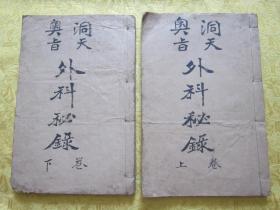 洞天
奥旨
外科秘錄
上卷
洞天
奥旨
外科秘錄
下卷